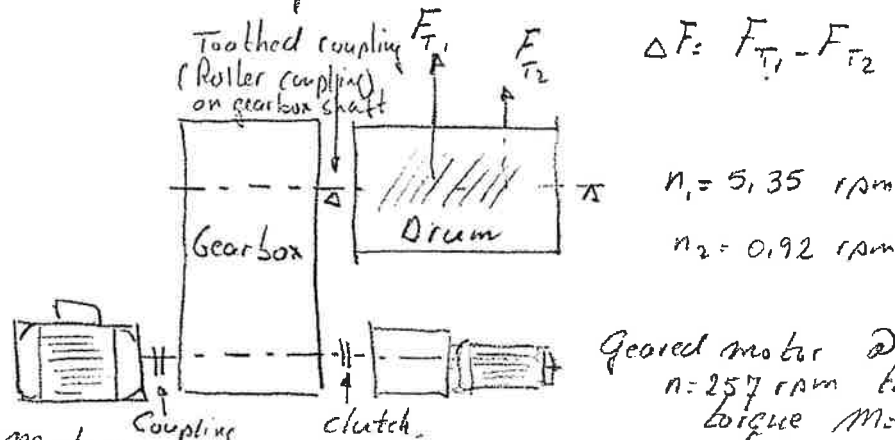 Toothed coupling
(Roller coupling)
on gearbox shaft
F_T1
F_T2
ΔF: F_T1 - F_T2
n₁= 5,35 rpm
n₂= 0,92 rpm
Gearbox
Drum
Geared motor
n=257 rpm
torque M=
Coupling
Clutch